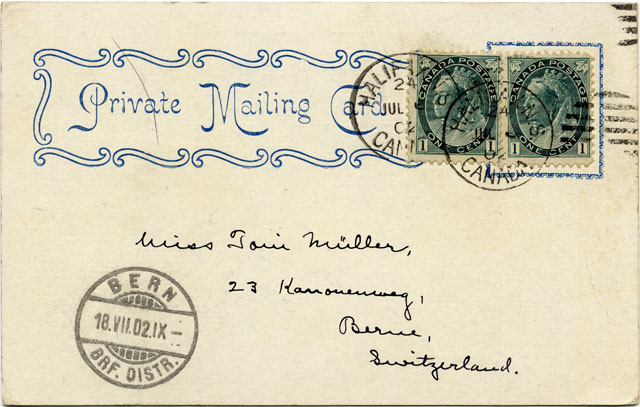 Private Mailing Card
CANADA POSTAGE CANADA POSTAGE
1 ONE CENT 1 1 ONE CENT 1
HALIFAX
JUL
02
CANADA
CANADA
Miss Toni Müller,
23 Kanonenweg,
Berne,
Switzerland.
BERN
18.VII.02.IX–
BRF. DISTR.